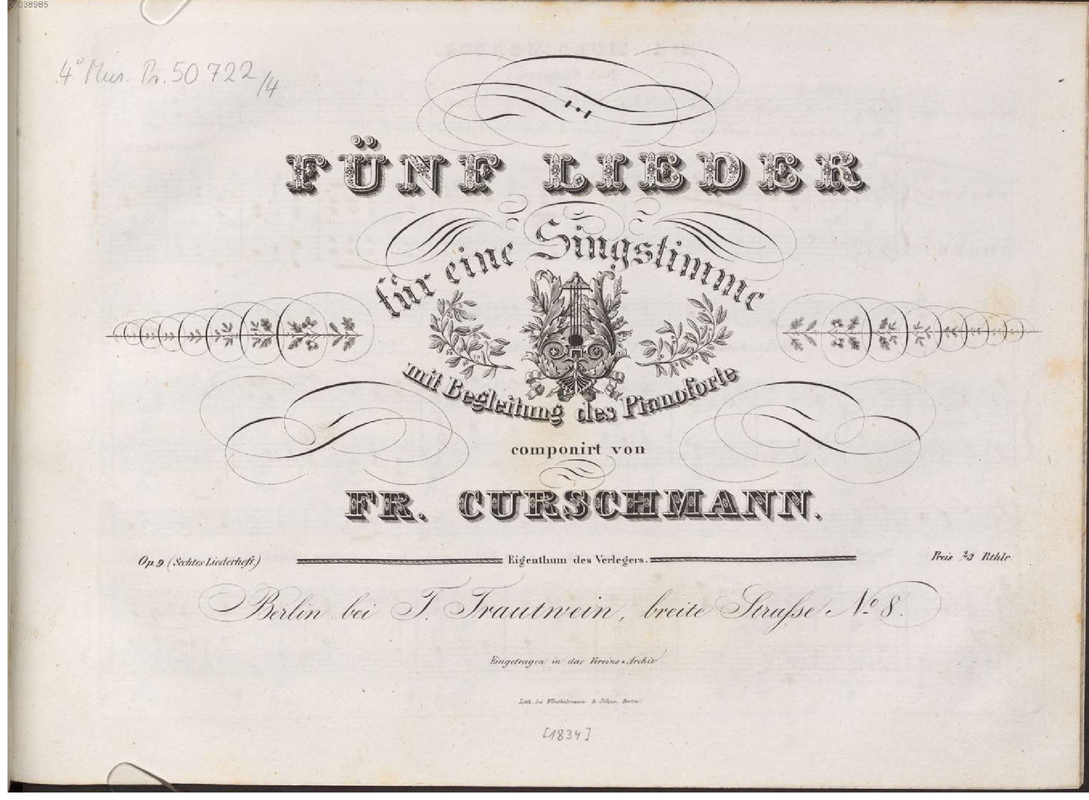 038985
4° Mus. Pr. 50 722/4
FÜNF LIEDER
für eine Singstimme
mit Begleitung des Pianoforte
componirt von
FR. CURSCHMANN.
Op. 9. (Sechtes Liederheft.) Eigenthum des Verlegers. Preis 2/3 Rthlr
Berlin bei T. Trautwein, breite Straſse No 8.
Eingetragen in das Vereins-Archiv.
Lith. bei & Söhne, Berlin
[1834]